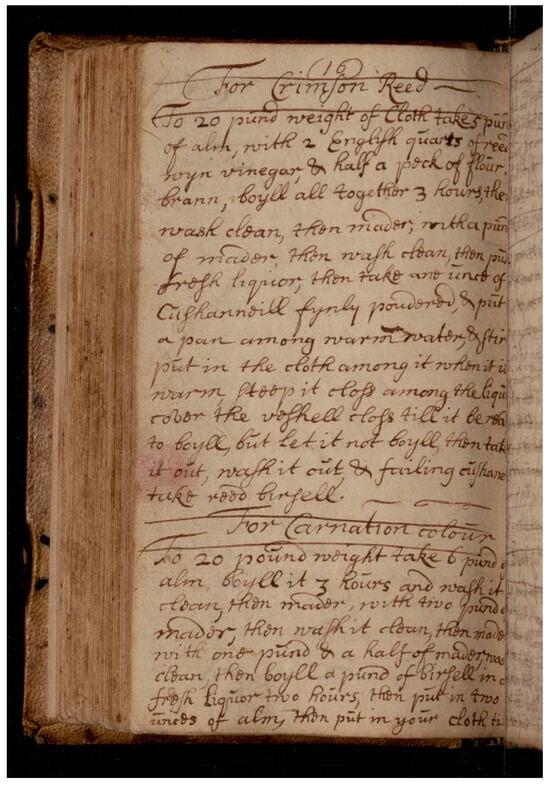 (16)
For Crimson Reed
To 20 pund weight of Cloth takes 5 pun
of alm, with 2 English quarts of reed
wyn vinegar, & half a peck of flour
brann, boyll all together 3 hours, the
wash clean, then mader, with a pun
of mader, then wash clean, then pu
fresh liquor, then take ane unce of
Cushanneill fynly powdered, & put
a pan among warm water, & stir
put in the cloth among it when it i
warm steep it closs among the liqu
cover the veshell closs till it be rea
to boyll, but let it not boyll, then tak
it out, wash it out, & failing cushane
take reed birsell.
For Carnation colour
To 20 pound weight take 6 pund o
alm, boyll it 3 hours and wash it
clean, then mader, with two pund o
mader, then wash it clean, then made
with one pund & a half of mader, was
clean, then boyll a pund of birsell in a
fresh liquor two hours, then put in two
unces of alm, then put in your cloth ti